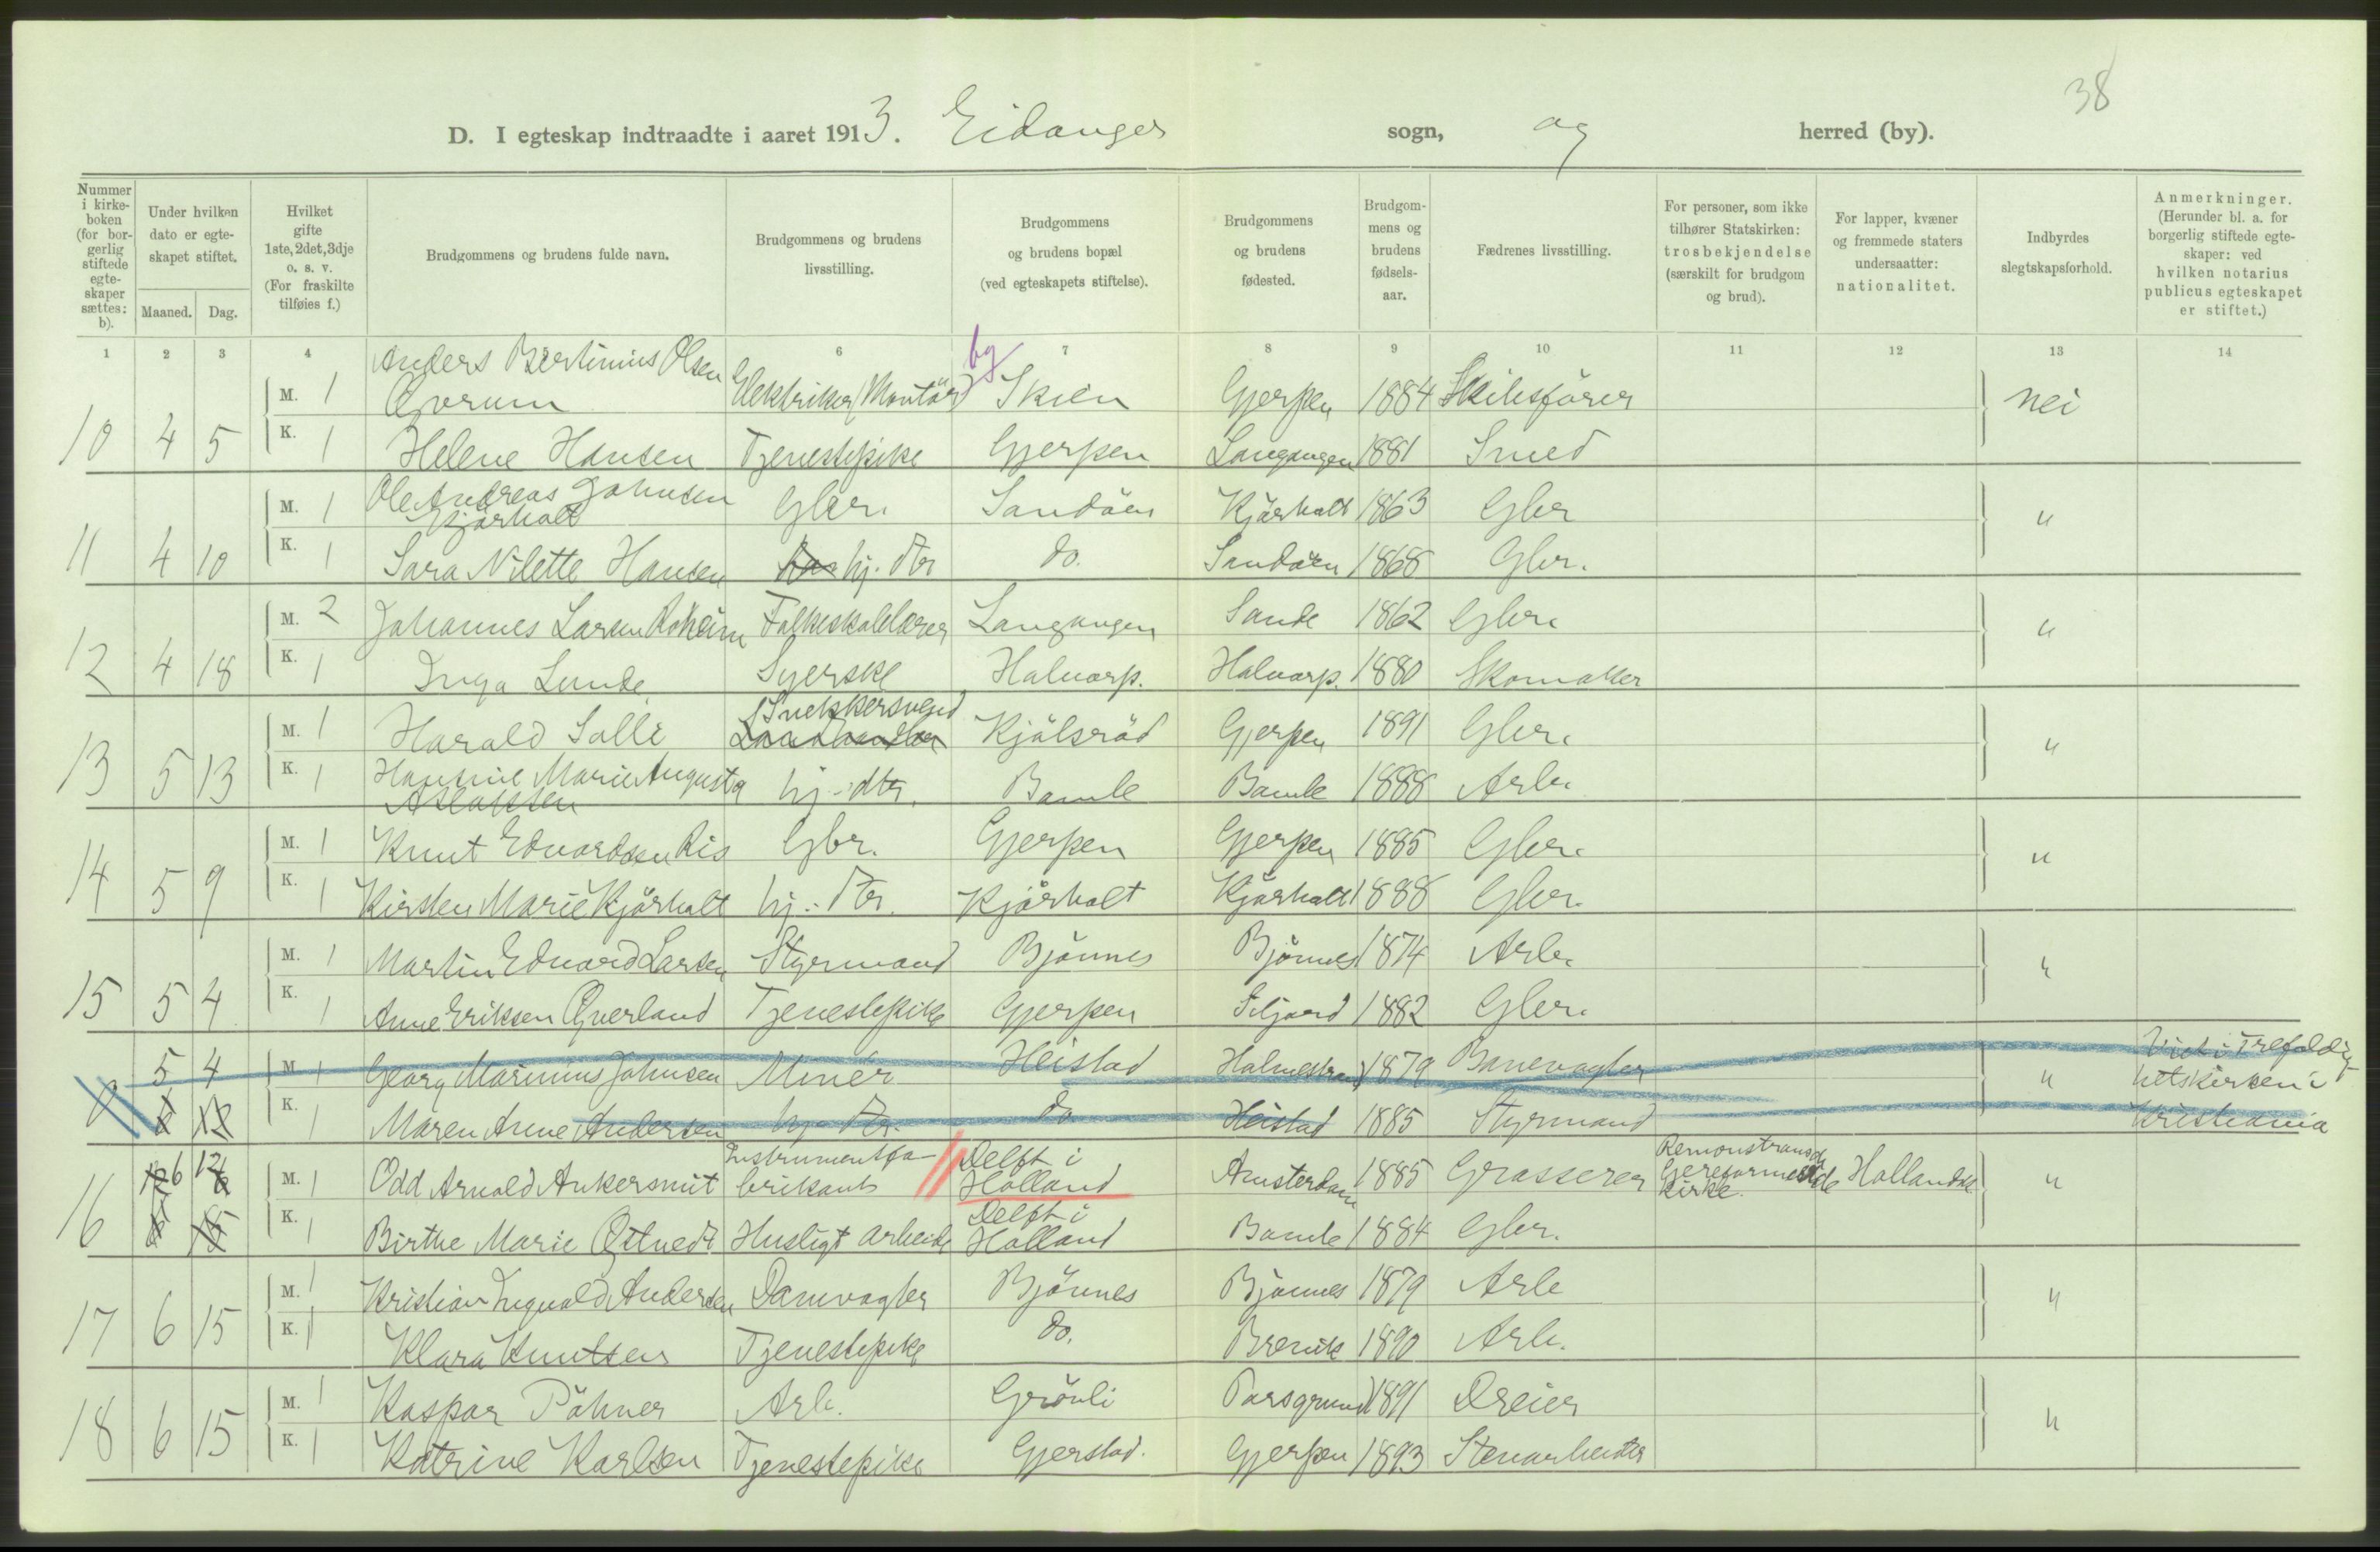 38
D. I egteskap indtraadte i aaret 1913. Eidanger sogn, og herred (by).
Nummer i kirkeboken (for borgerlig stiftede egteskaper sættes: b).
Under hvilken dato er egteskapet stiftet.
Maaned. Dag.
Hvilket gifte 1ste, 2det, 3dje o. s. v. (For fraskilte tilføies f.)
Brudgommens og brudens fulde navn.
Brudgommens og brudens livsstilling.
Brudgommens og brudens bopæl (ved egteskapets stiftelse).
Brudgommens og brudens fødested.
Brudgommens og brudens fødselsaar.
Fædrenes livsstilling.
For personer, som ikke tilhører Statskirken: trosbekjendelse (særskilt for brudgom og brud).
For lapper, kvæner og fremmede staters undersaatter: nationalitet.
Indbyrdes slegtskapsforhold.
Anmerkninger. (Herunder bl. a. for borgerlig stiftede egteskaper: ved hvilken notarius publicus egteskapet er stiftet.)
1 2 3 4 6 7 8 9 10 11 12 13 14
Anders Bertinius Olsen
M. 1 Gvrum Elektriker (Montör) by Skien Gjerpen 1884 Skibsfører nei
10 4 5 K. 1 Helene Hansen Tjenestepike Gjerpen Langangen 1881 Smed
M. 1 Ole Andreas Johnsen Kjørholt Gbr. Sandöen Kjørholt 1863 Gbr "
11 4 10 K. 1 Sara Nilette Hansen hj. dtr do. Sandöen 1868 Gbr.
M. 2 Johannes Larsen Folkeskolelærer Langangen Sande 1862 Gbr. "
12 4 18 K. 1 Inga Lunde Syerske Halvarp. Halvarp. 1880 Skomaker
M. 1 Harald Solli Snekkersvend Kjölsröd Gjerpen 1891 Gbr. "
13 5 13 K. 1 Hansine Marie Augusta Aslaksen hj. dtr. Bamle Bamle 1888 Arb.
M. 1 Knut Edvardsen Ris Gbr. Gjerpen Gjerpen 1885 Gbr. "
14 5 9 K. 1 Kirsten Marie Kjörholt hj. dtr. Kjörholt Kjörholt 1888 Gbr.
M. 1 Martin Edvard Larsen Styrmand Björnes Björnes 1874 Arb. "
15 5 4 K. 1 Anne Eriksen Qverland Tjenestepike Gjerpen Siljord 1882 Gbr.
5 4 M. 1 Georg Marinius Johnsen Minér Heistad Holmestrand 1879 Banevogter " Viet i Trefoldig-
hetskirken i
K. 1 Maren Anne Andersen hj. dtr. do. Heistad 1885 Styrmand Kristiania
6 12 M. 1 Odd Arnold Ankersmit Instrumentfabrikant Delft i Holland Amsterdam 1885 Grosserer Remonstransde Gereformerde Kirke. Hollandsk "
16 K. 1 Birthe Marie Østvedt Husligt arbeide Delft i Holland Bamle 1884 Gbr.
M. 1 Kristian Ingvald Andersen Damvogter Björnes Björnes 1879 Arb "
17 6 15 K. 1 Klara Knutsen Tjenestepike do. Brevik 1890 Arb.
M. 1 Kaspar Pöhner Arb. Grönli Porsgrund 1891 Dreier "
18 6 15 K. 1 Katrine Karlsen Tjenestepike Gjerstad. Gjerpen 1893 Stenarbeider